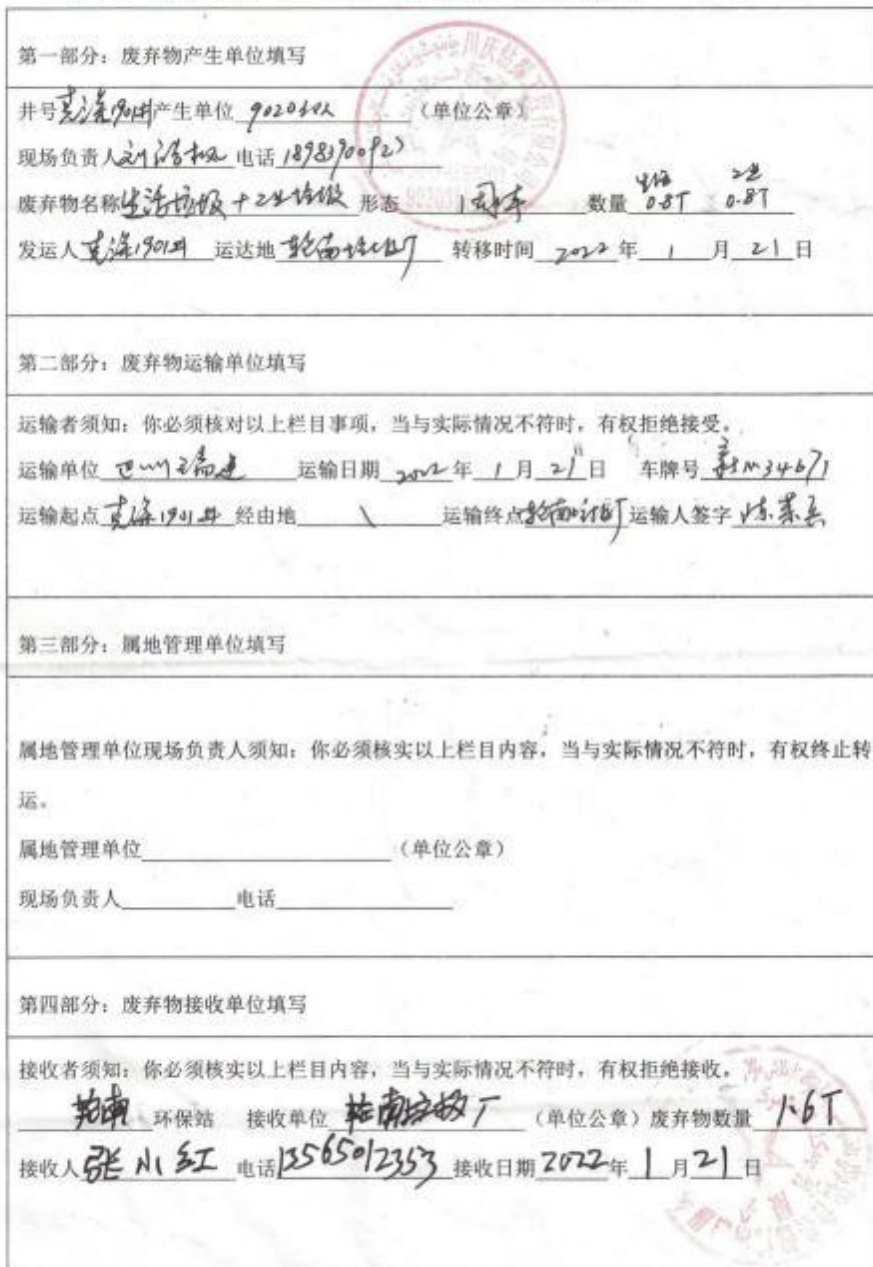 第一部分：废弃物产生单位填写
井号克深1901井产生单位 90203队 （单位公章）
现场负责人 电话
废弃物名称生活垃圾+工业垃圾 形态 固体 数量 生活 0.8T 工业 0.8T
发运人克深1901井 运达地 轮南垃圾厂 转移时间 2022 年 1 月 21 日
第二部分：废弃物运输单位填写
运输者须知：你必须核对以上栏目事项，当与实际情况不符时，有权拒绝接受。
运输单位 运输日期 2022 年 1 月 21 日 车牌号 新M34671
运输起点 克深1901井 经由地 \ 运输终点 轮南垃圾厂 运输人签字
第三部分：属地管理单位填写
属地管理单位现场负责人须知：你必须核实以上栏目内容，当与实际情况不符时，有权终止转
运。
属地管理单位 （单位公章）
现场负责人 电话
第四部分：废弃物接收单位填写
接收者须知：你必须核实以上栏目内容，当与实际情况不符时，有权拒绝接收。
轮南 环保站 接收单位 轮南垃圾厂 （单位公章）废弃物数量 1.6T
接收人 张小红 电话 13565012353 接收日期 2022 年 1 月 21 日